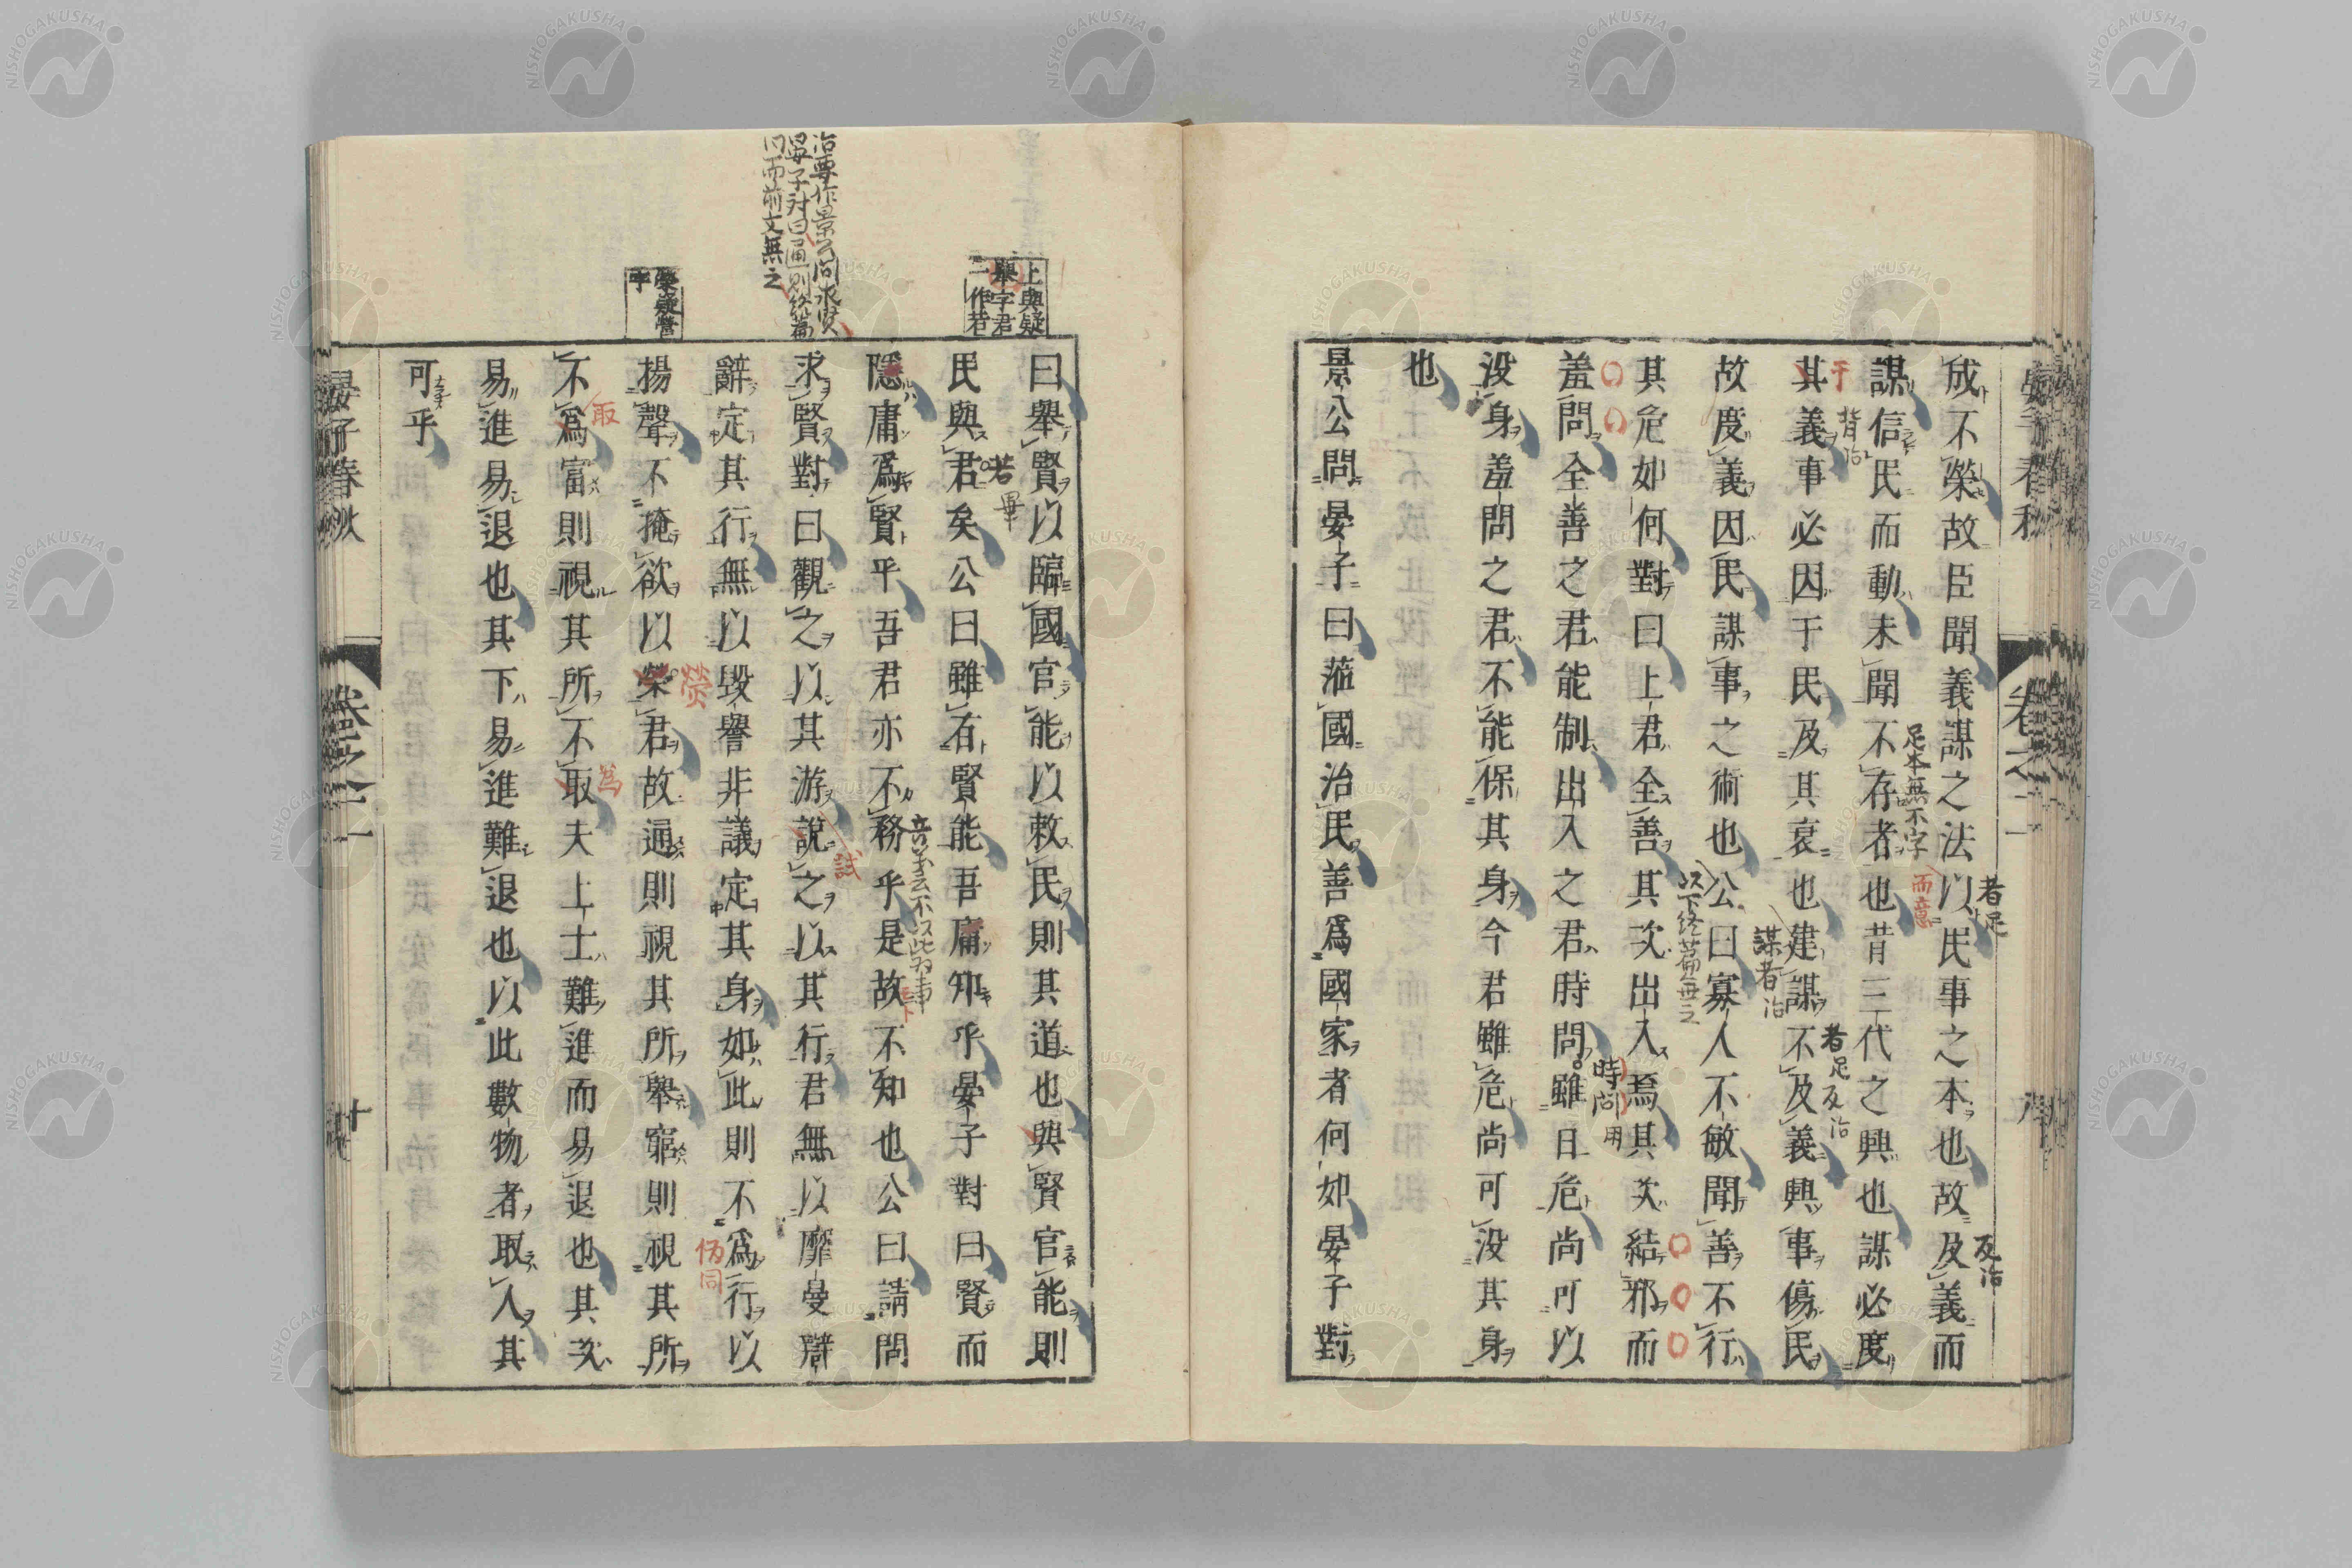 成不榮故臣聞義謀之法以民事之本也故及義而
謀信民而動未聞不存者也昔三代之興也謀必度
其義事必因于民及其衰也建謀不及義興事傷民
故度義因民謀事之術也公曰寡人不敏聞善不行
其危如何對曰上君全善其次出入焉其次結邪而
羞問全善之君能制出入之君時問雖日危尚可以
没身羞問之君不能保其身今君雖危尚可没其身
也
景公問晏子曰蒞國治民善爲國家者何如晏子對
曰舉賢以臨國官能以敕民則其道也興賢官能則
民與君矣公曰雖有賢能吾庸知乎晏子對曰賢而
隱庸爲賢乎吾君亦不務乎是故不知也公曰請問
求賢對曰觀之以其游說之以其行君無以靡曼辯
辭定其行無以毀譽非議定其身如此則不爲行以
揚聲不掩欲以榮君故通則視其所舉窮則視其所
不爲富則視其所不取夫上士難進而易退也其次
易進易退也其下易進難退也以此數物者取人其
可乎
晏子春秋
卷之二
上與疑
舉字君
一作若
治要作景公問求賢
晏子對曰通則終篇
問而前文無之
榮疑營
字
者足
及治
足本無不字
而意
干
背治
者足及治
謀者治
以下終篇無之
時問用
若
畢
試
熒
取
爲
偽同